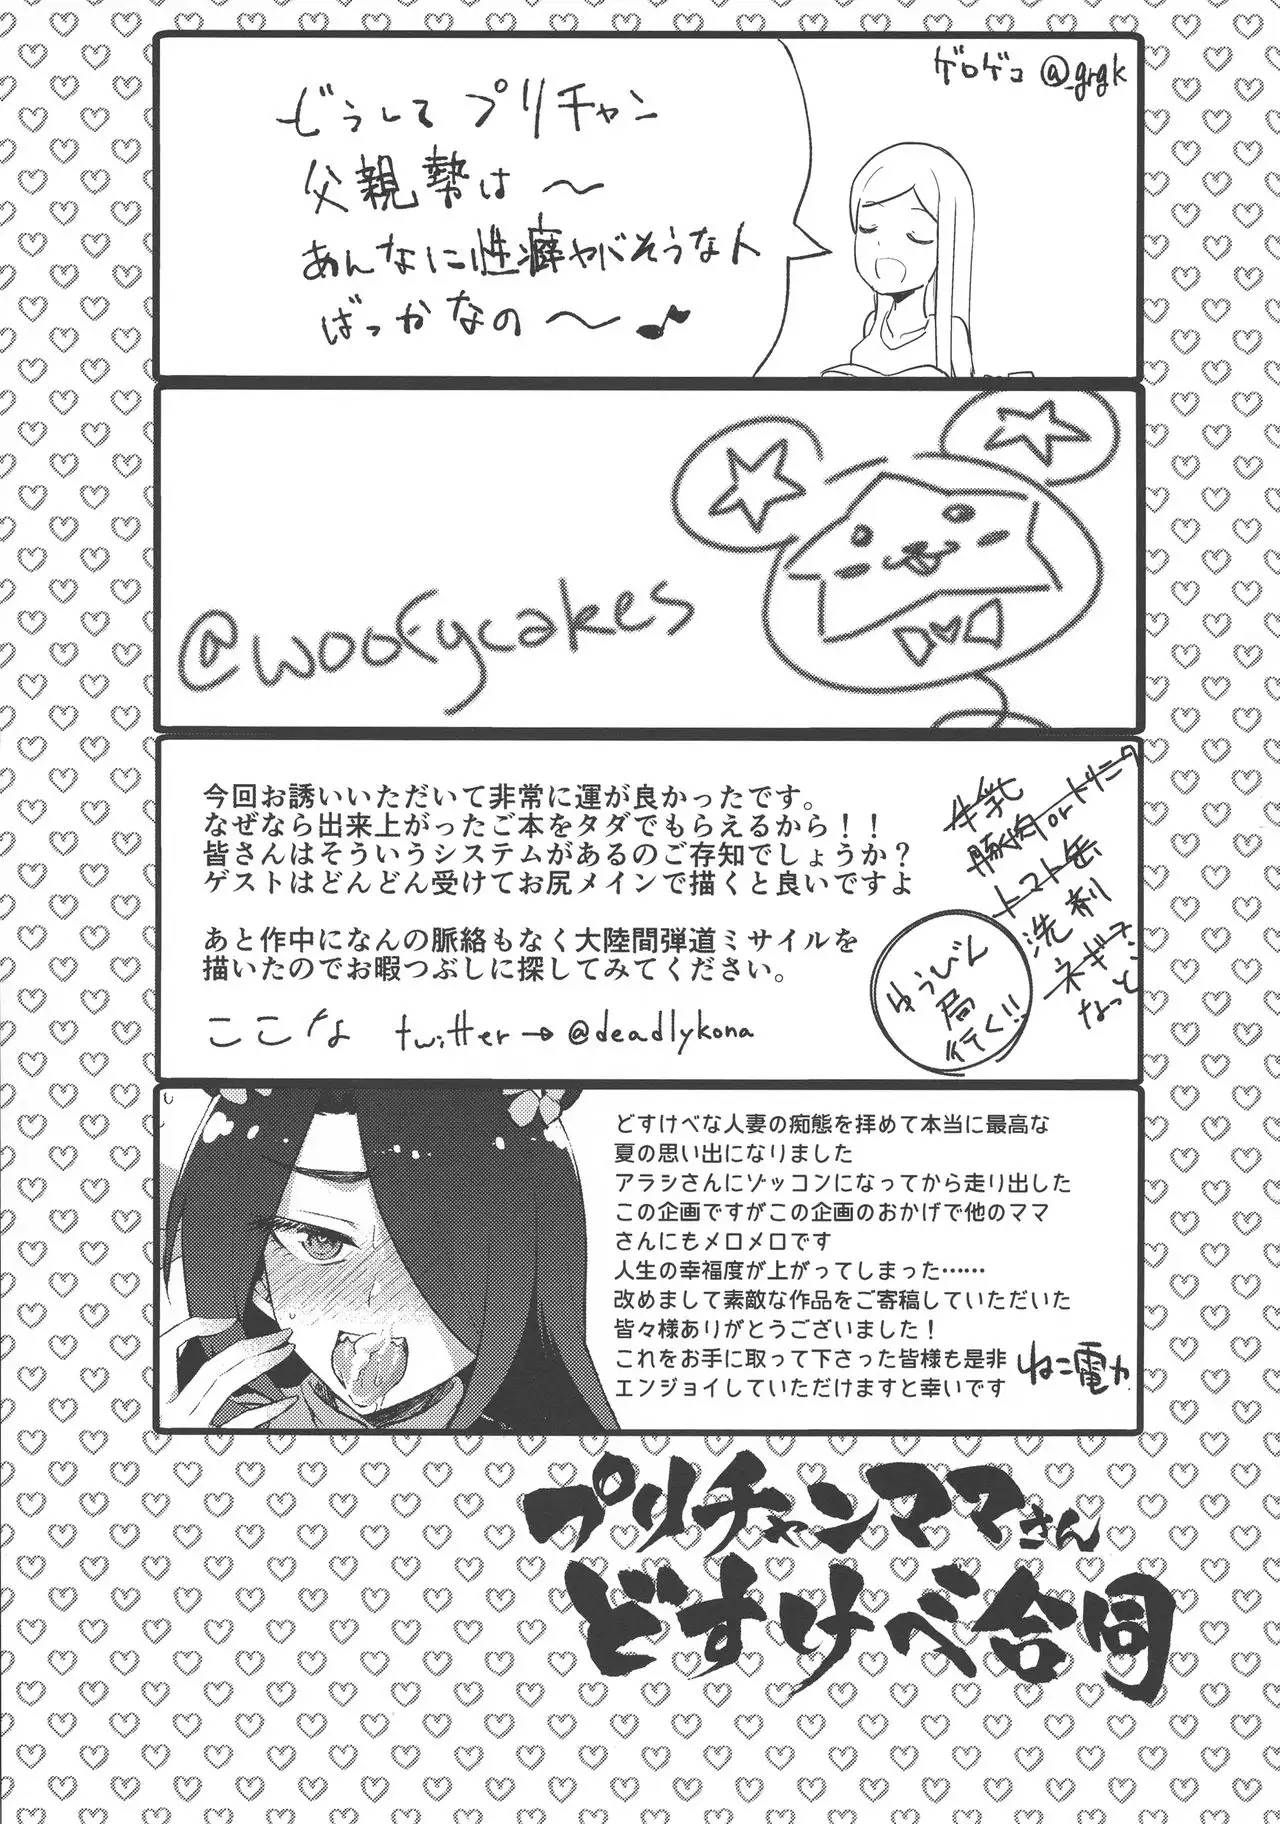 ゲロゲコ @_grgk
どうして プリチャン
父親勢は〜
あんなに性癖ヤバそうな人
ばっかなの〜♪
@woofycakes
今回お誘いいただいて非常に運が良かったです。
なぜなら出来上がったご本をタダでもらえるから！！
皆さんはそういうシステムがあるのご存知でしょうか？
ゲストはどんどん受けてお尻メインで描くと良いですよ
あと作中になんの脈絡もなく大陸間弾道ミサイルを
描いたのでお暇つぶしに探してみてください。
ここな twitter→@deadlykona
牛乳
豚肉orトリニク
トマト缶
洗剤
ネギ
なっと
ゆうびん
局
行く!!
どすけべな人妻の痴態を拝めて本当に最高な
夏の思い出になりました
アラシさんにゾッコンになってから走り出した
この企画ですがこの企画のおかげで他のママ
さんにもメロメロです
人生の幸福度が上がってしまった……
改めまして素敵な作品をご寄稿していただいた
皆々様ありがとうございました！
これをお手に取って下さった皆様も是非
エンジョイしていただけますと幸いです
ねこ電力
プリチャンママさん
どすけべ合同